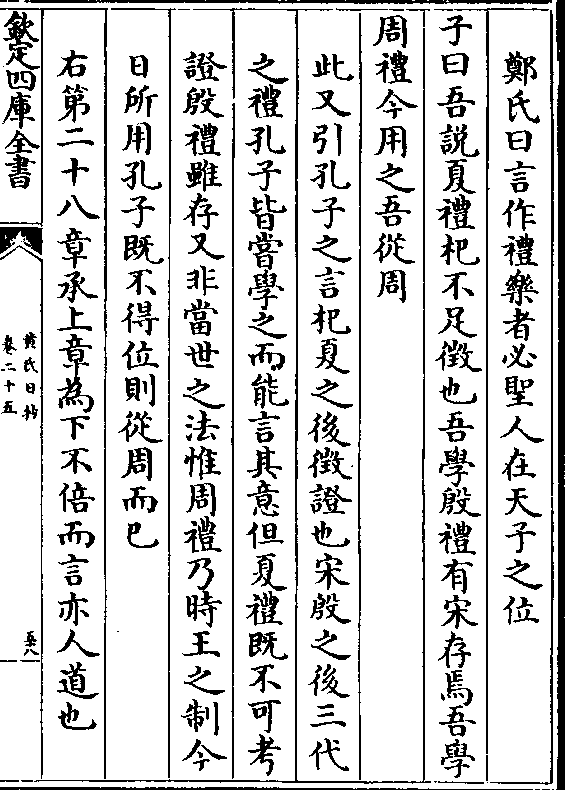 鄭氏曰言作禮樂者必聖人在天子之位
子曰吾説夏禮杞不足徵也吾學殷禮有宋存焉吾學
周禮今用之吾從周
此又引孔子之言杞夏之後徵證也宋殷之後三代
之禮孔子皆嘗學之而能言其意但夏禮既不可考
證殷禮雖存又非當世之法惟周禮乃時王之制今
日所用孔子既不得位則從周而已
右第二十八章承上章為下不倍而言亦人道也
欽定四庫全書
黄氏日抄
卷二十五
五八